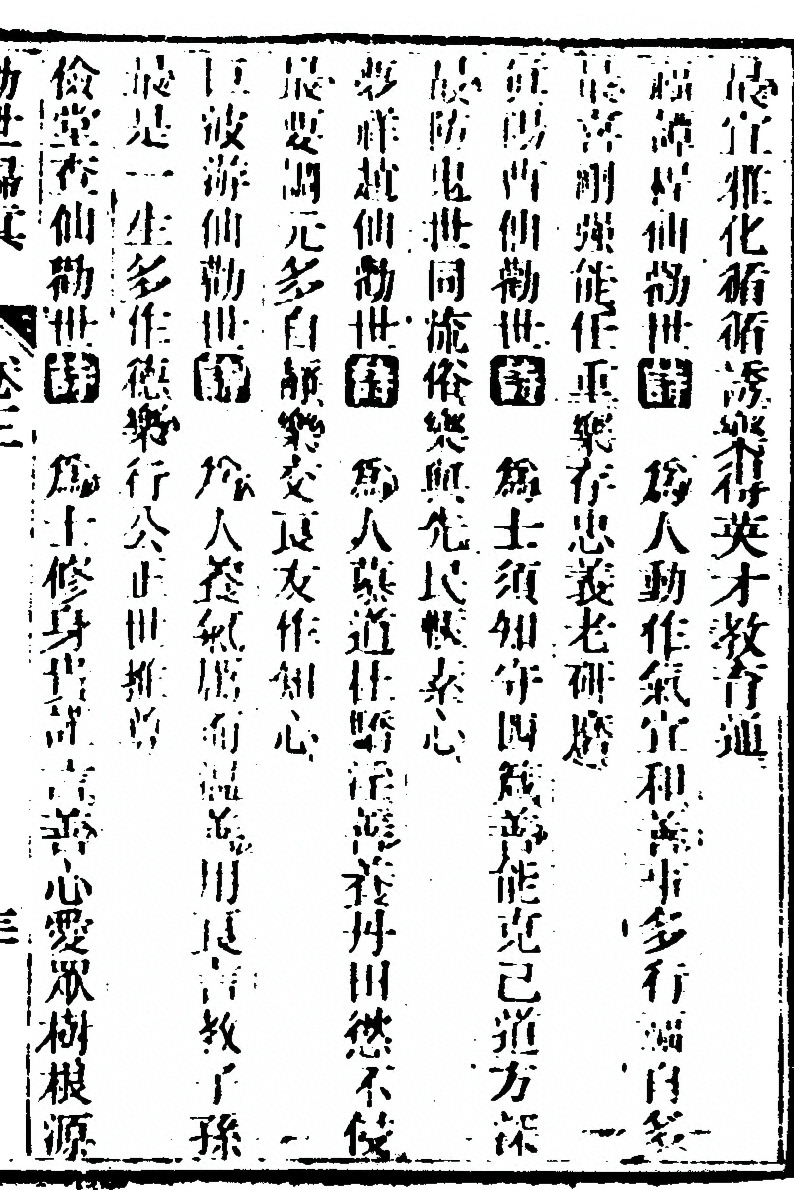 最宜雅化循循誘樂得英才教育通
福潭程仙勸世詩 為人動作氣宜和善事多行福自
最宜剛強能任重樂存忠義老研磨
紅陽曹仙勸世詩 為士須知守四箴善能克己道方深
最防與世同流俗樂與先民愜素心
夢祥趙仙勸世詩 為人慕道仕賢 善養丹田懲不侵
最要調元多自 樂交良友作知心
巨波游仙勸世詩 為人養氣 而溫善用良言教子孫
最是一生多作德樂行公正世推尊
儉堂 仙勸世詩 為士修身 言善心愛眾樹根源
勸世歸真 卷三